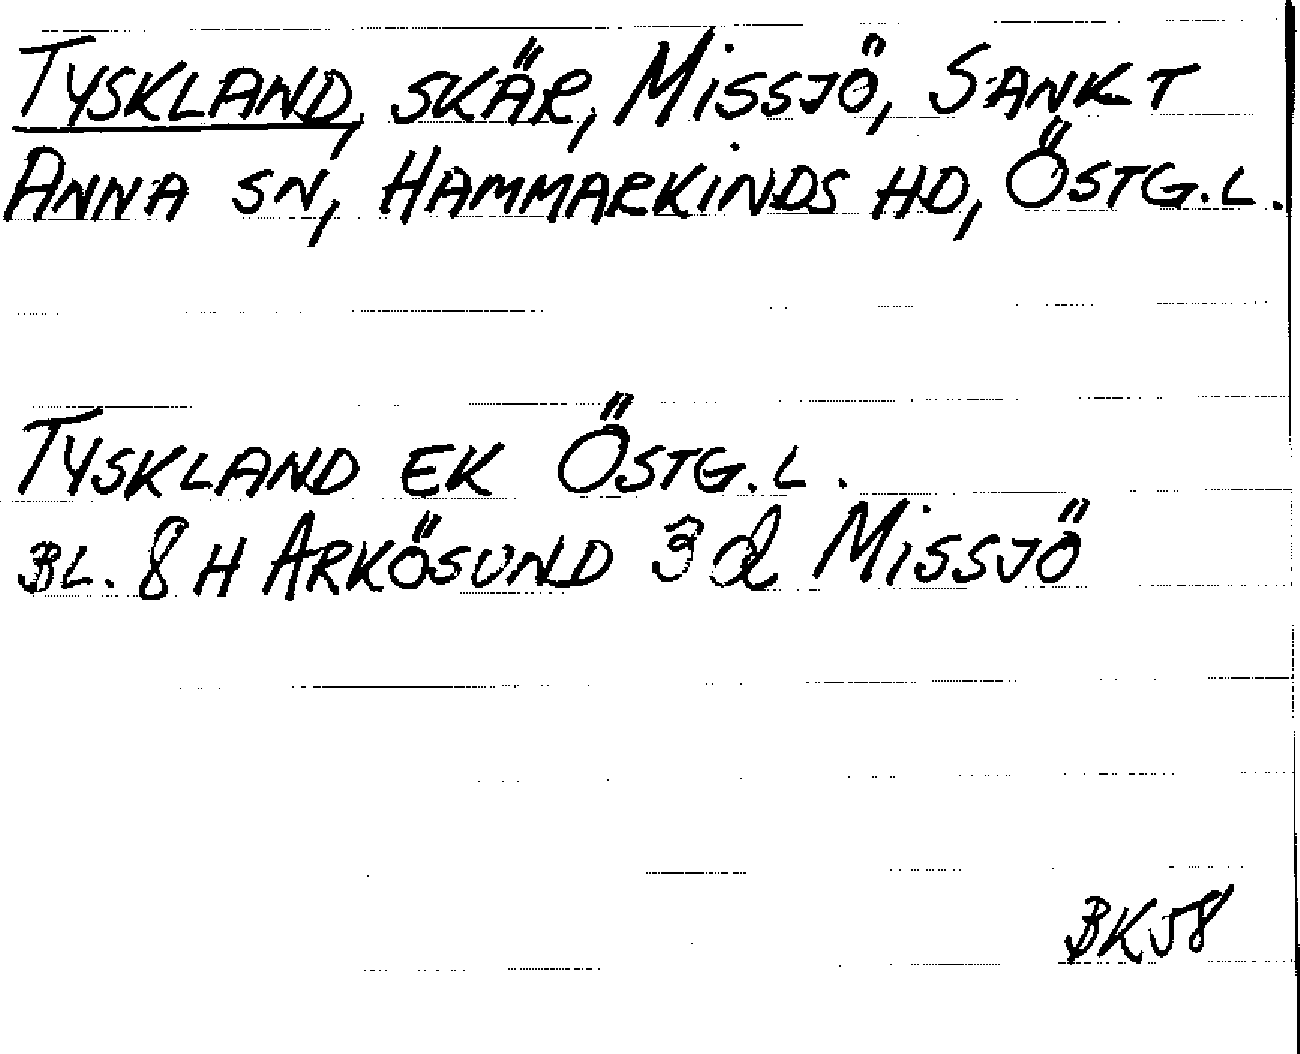 TYSKLAND, SKÄR, MISSJÖ, SANKT
ANNA SN, HAMMARKINDS HD, ÖSTG.L.
TYSKLAND EK ÖSTG.L.
BL. 8 H ARKÖSUND 3 d MISSJÖ
BK58